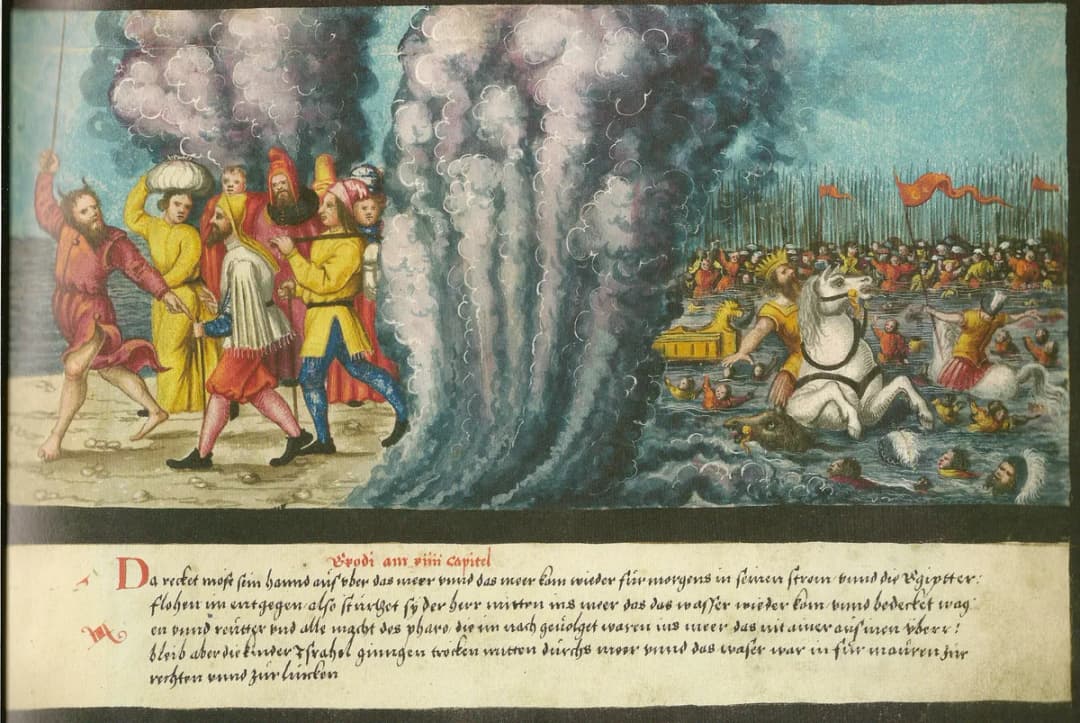 Exodi am xiiii Capitel
Da recket mose sein hannd aus vber das meer vnnd das meer kam wieder für morgens in seinen strom vnnd die Egiptter:
flohen im entgegen also stürtzet sy der herr mitten ins meer das das wasser wieder kam vnnd bedecket wag
en vnnd reütter vnd alle macht des pharo die im nach geuolget waren ins meer das nit ainer aus inen vberr:
bleib aber die kinder Israhel giengen trocken mitten durchs meer vnnd das waser war in für mauren zür
rechten vnnd zür lincken